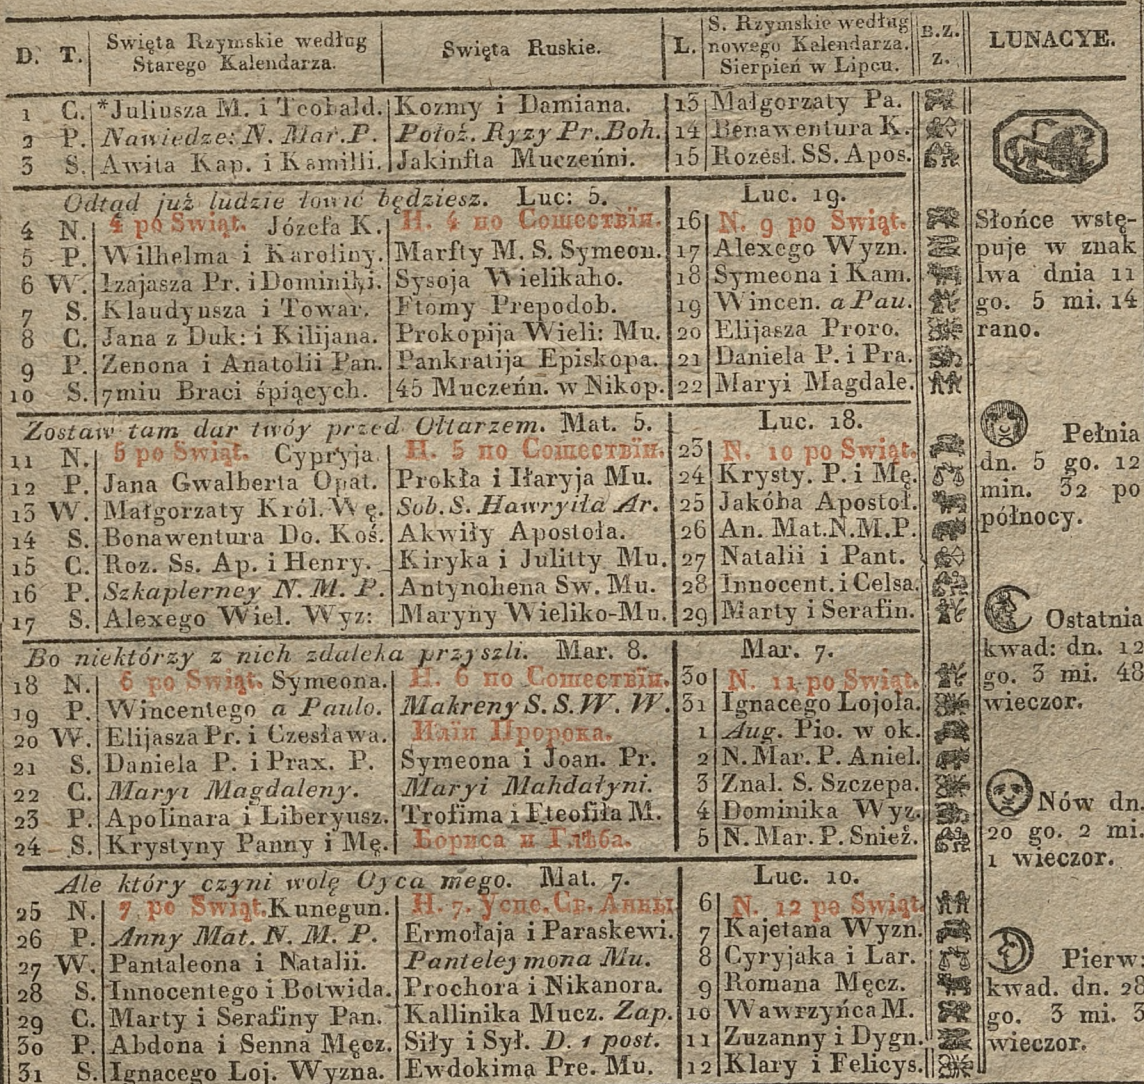 D. T. Swięta Rzymskie według Starego Kalendarza. Swięta Ruskie. L. S. Rzymskie według nowego Kalendarza. Sierpień w Lipcu. B.Z. z. LUNACYE.
1 C. *Juliusza M. i Teobald. Kozmy i Damiana. 13 Małgorzaty Pa.
2 P. Nawiedze: N. Mar. P. Położ. Ryzy Pr. Boh. 14 Benawentura K.
3 S. Awita Kap. i Kamilli. Jakinfta Muczeńni. 15 Rozesł. SS. Apos.
Odtąd już ludzie łowić będziesz. Luc: 5. Luc. 19.
4 N. 4 po Swiąt. Józefa K. Н. 4 по Сошествїи. 16 N. 9 po Swiąt.
5 P. Wilhelma i Karoliny. Marfty M. S. Symeon. 17 Alexego Wyzn.
6 W. Izajasza Pr. i Dominiki. Sysoja Wielikaho. 18 Symeona i Kam.
7 S. Klaudyusza i Towar. Ftomy Prepodob. 19 Wincen. a Pau.
8 C. Jana z Duk: i Kilijana. Prokopija Wieli: Mu. 20 Elijasza Proro.
9 P. Zenona i Anatolii Pan. Pankratija Episkopa. 21 Daniela P. i Pra.
10 S. 7miu Braci śpiących. 45 Muczeńn. w Nikop. 22 Maryi Magdale.
Zostaw tam dar twóy przed Ołtarzem. Mat. 5. Luc. 18.
11 N. 5 po Swiąt. Cypryja. Н. 5 по Сошествїи. 23 N. 10 po Swiąt.
12 P. Jana Gwalberta Opat. Prokła i Iłaryja Mu. 24 Krysty. P. i Mę.
13 W. Małgorzaty Król. Wę. Sob. S. Hawryiła Ar. 25 Jakóba Apostoł.
14 S. Bonawentura Do. Koś. Akwiły Apostoła. 26 An. Mat. N. M. P.
15 C. Roz. Ss. Ap. i Henry. Kiryka i Julitty Mu. 27 Natalii i Pant.
16 P. Szkaplerney N. M. P. Antynohena Sw. Mu. 28 Innocent. i Celsa.
17 S. Alexego Wiel. Wyz: Maryny Wieliko-Mu. 29 Marty i Serafin.
Bo niektórzy z nich zdaleka przyszli. Mar. 8. Mar. 7.
18 N. 6 po Swiąt. Symeona. Н. 6 по Сошествїи. 30 N. 11 po Swiąt.
19 P. Wincentego a Paulo. Makreny S. S. W. W. 31 Ignacego Lojoła.
20 W. Elijasza Pr. i Czesława. Илїи Пророка. 1 Aug. Pio. w ok.
21 S. Daniela P. i Prax. P. Symeona i Joan. Pr. 2 N. Mar. P. Aniel.
22 C. Maryi Magdaleny. Maryi Mahdałyni. 3 Znal. S. Szczepa.
23 P. Apolinara i Liberyusz. Trofima i Fteofiła M. 4 Dominika Wyz.
24 S. Krystyny Panny i Mę. Бориса и Глѣба. 5 N. Mar. P. Snież.
Ale który czyni wolę Oyca mego. Mat. 7. Luc. 10.
25 N. 7 po Swiąt. Kunegun. Н. 7. Успе. Св. Анны 6 N. 12 po Swiąt
26 P. Anny Mat. N. M. P. Ermołaja i Paraskewi. 7 Kajetana Wyzn.
27 W. Pantaleona i Natalii. Panteleymona Mu. 8 Cyryjaka i Lar.
28 S. Innocentego i Botwida. Prochora i Nikanora. 9 Romana Męcz.
29 C. Marty i Serafiny Pan. Kallinika Mucz. Zap. 10 Wawrzyńca M.
30 P. Abdona i Senna Męcz. Siły i Sył. D. 1 post. 11 Zuzanny i Dygn.
31 S. Ignacego Loj. Wyzna. Ewdokima Pre. Mu. 12 Klary i Felicys.
Słońce wstę-
puje w znak
lwa dnia 11
go. 5 mi. 14
rano.
Pełnia
dn. 5 go. 12
min. 32 po
północy.
Ostatnia
kwad: dn. 12
go. 3 mi. 48
wieczor.
Nów dn.
20 go. 2 mi.
1 wieczor.
Pierw:
kwad. dn. 28
go. 3 mi. 3
wieczor.